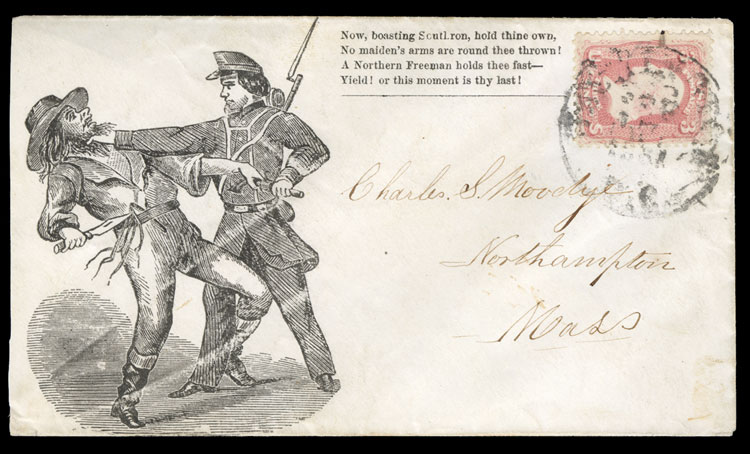 Now, boasting Southron, hold thine own,
No maiden's arms are round thee thrown!
A Northern Freeman holds thee fast—
Yield! or this moment is thy last!
Charles. S. Moodye
Northampton
Mass
U
3
S